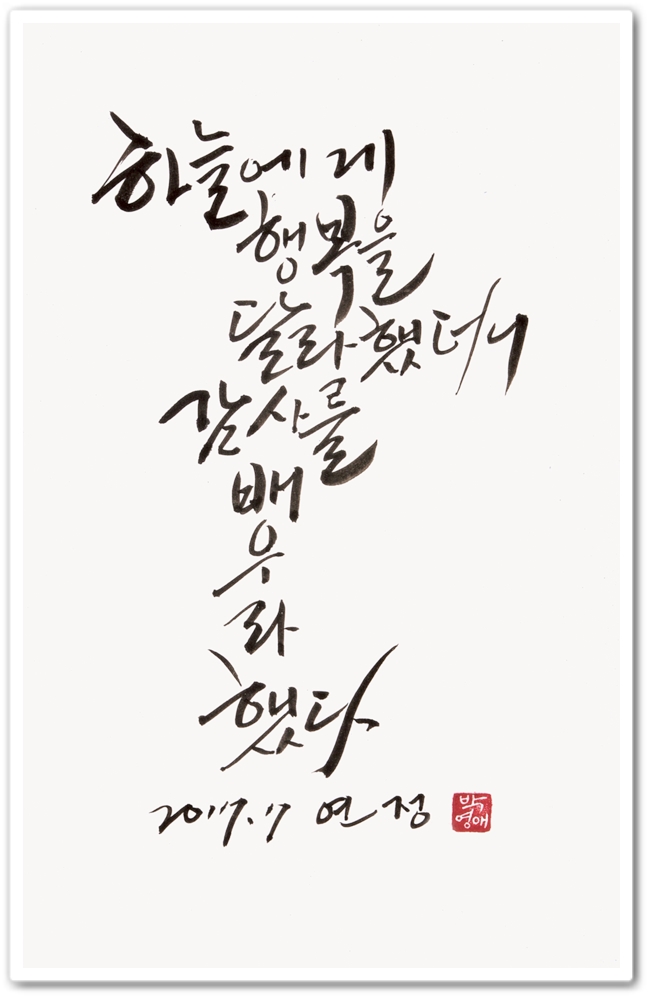 하늘에게
행복을
달라했더니
감사를
배
우
라
했다
2017.7 연정
박
영애